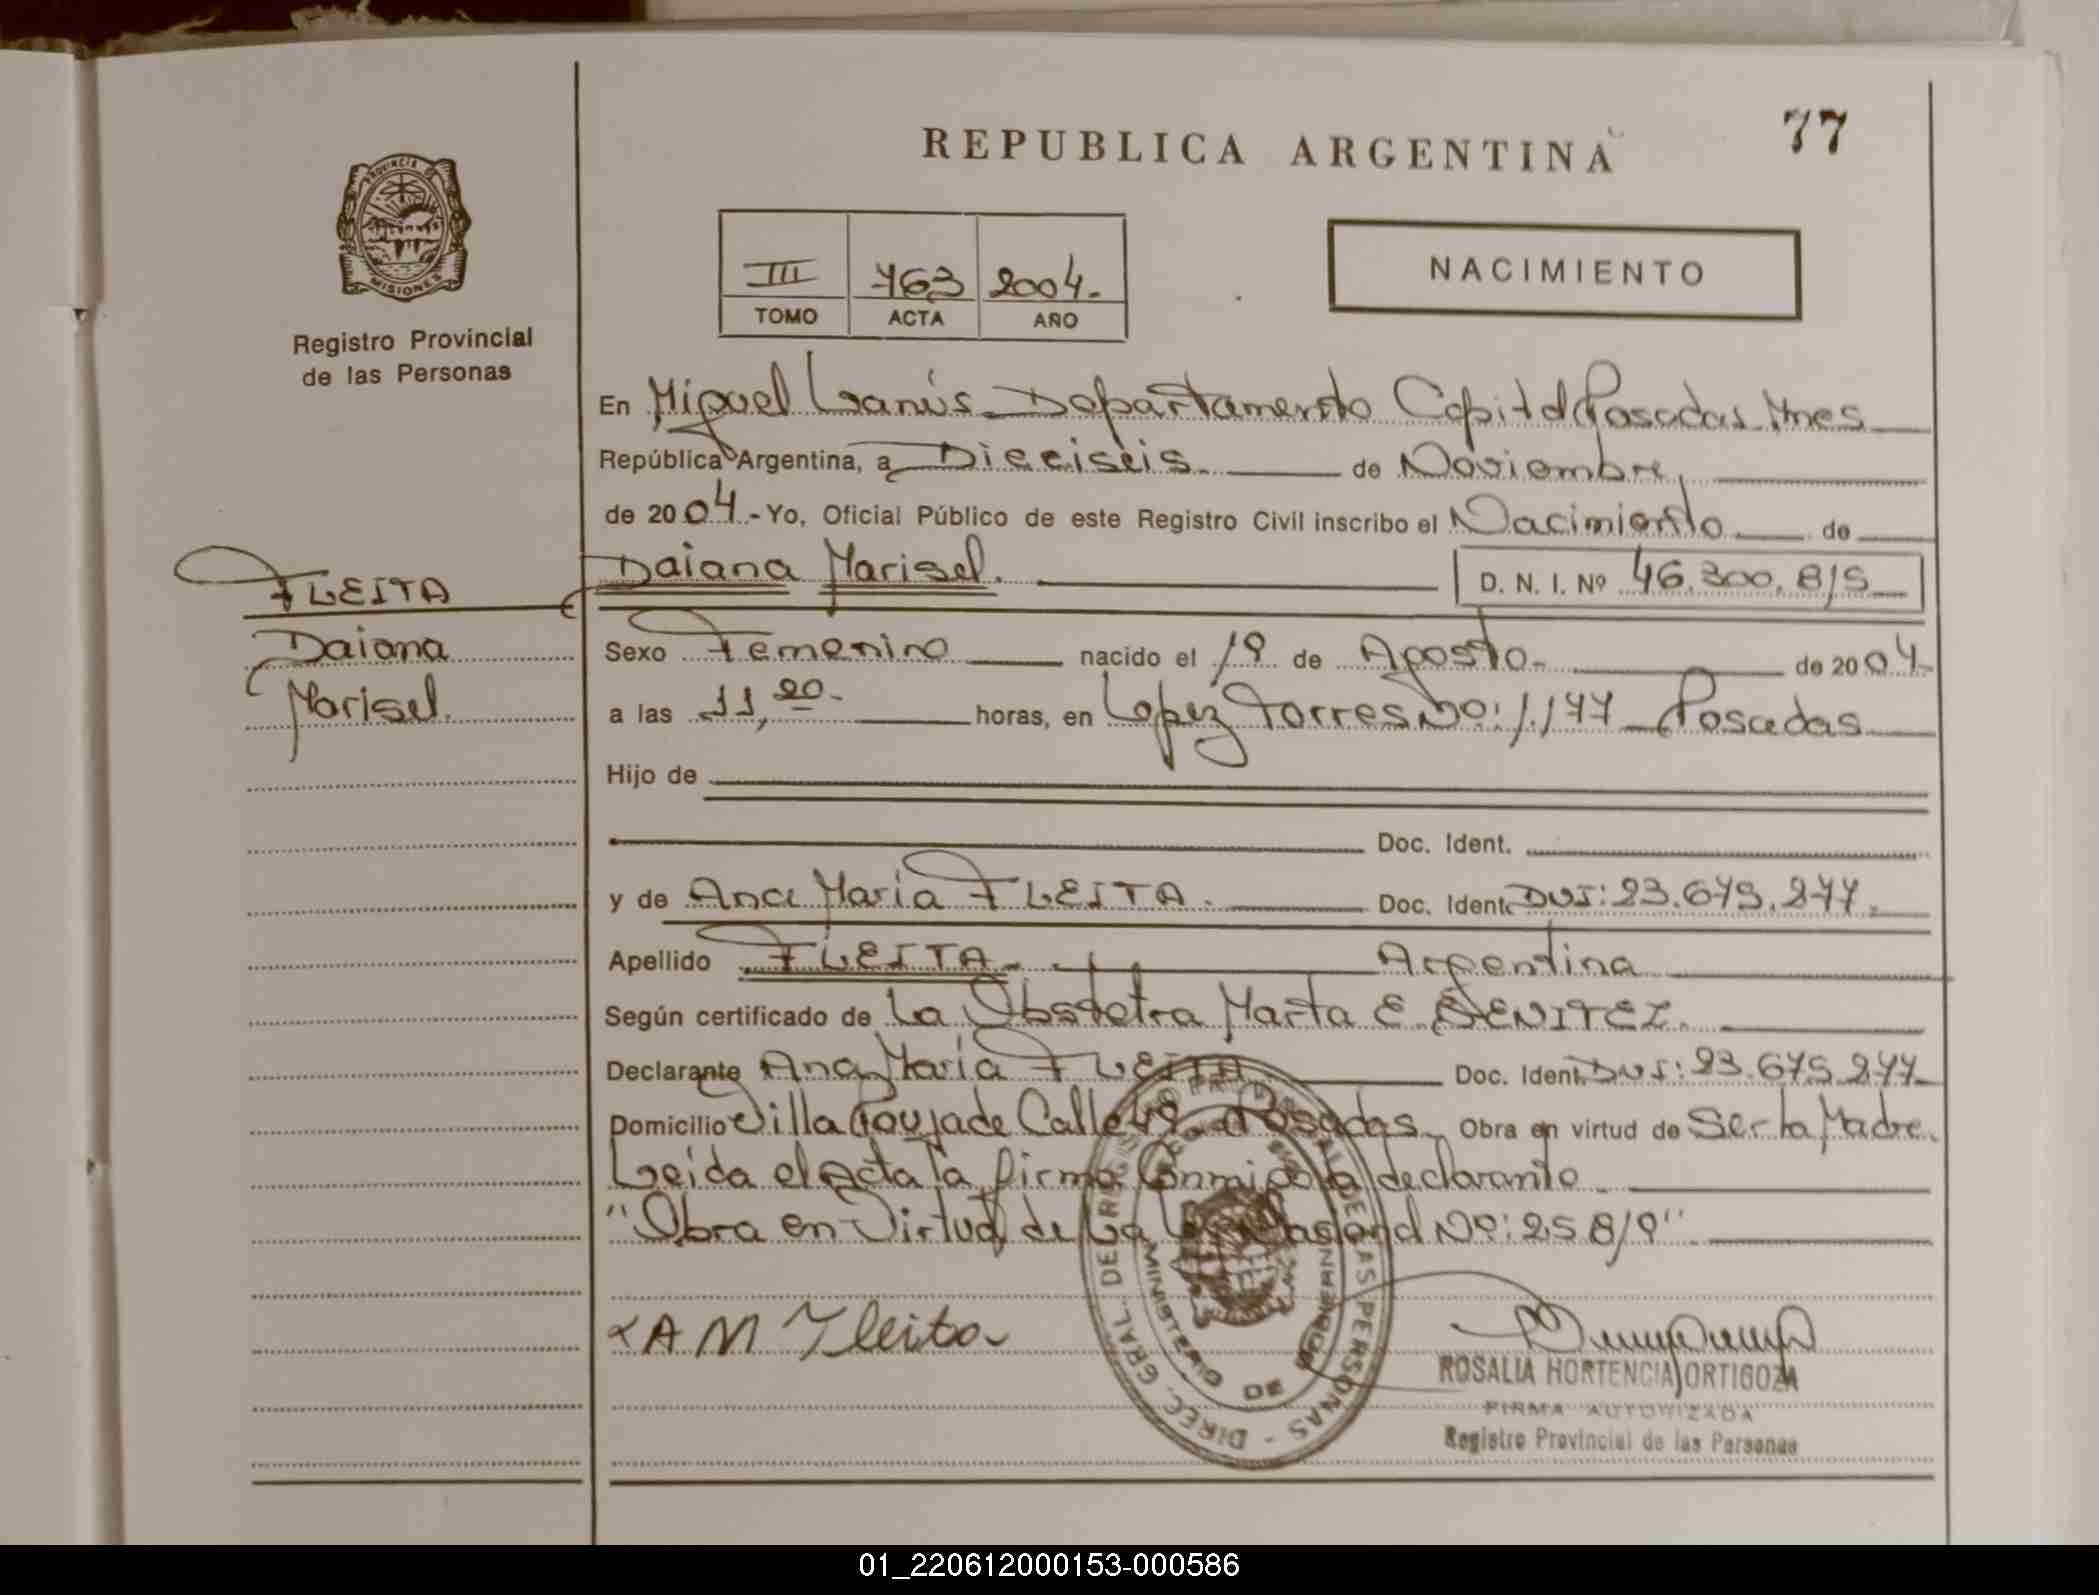 77
REPUBLICA ARGENTINA
PROVINCIA DE MISIONES
Registro Provincial
de las Personas
III 763 2004.-
TOMO ACTA AÑO
NACIMIENTO
En Miguel Lanús Departamento Capital Posadas Mnes
República Argentina, a Dieciseis de Noviembre
de 2004.- Yo, Oficial Público de este Registro Civil inscribo el Nacimiento de
Daiana Marisel. D. N. I. Nº 46.300.815
FLEITA
Daiana
Marisel.
Sexo Femenino nacido el 19 de Agosto de 2004.
a las 11,20.- horas, en Lopez Torres No: 1.177 Posadas
Hijo de
Doc. Ident.
y de Ana Maria FLEITA. Doc. Ident. DNI: 23.675.277.
Apellido FLEITA. Argentina
Según certificado de La Obstetra Marta E. BENITEZ.
Declarante Ana Maria FLEITA Doc. Ident. DNI: 23.675.277
Domicilio Villa Poujade Calle Posadas. Obra en virtud de Ser la Madre.
Leida el acta la firma Conmigo la declarante
"Obra en Virtud de La Nº: 25819"
A M Fleita
ROSALIA HORTENCIA ORTIGOZA
FIRMA AUTORIZADA
Registro Provincial de las Personas
DIREC. GRAL. DE REGISTRO PROVINCIAL DE LAS PERSONAS
MINISTERIO DE GOBIERNO
01_220612000153-000586